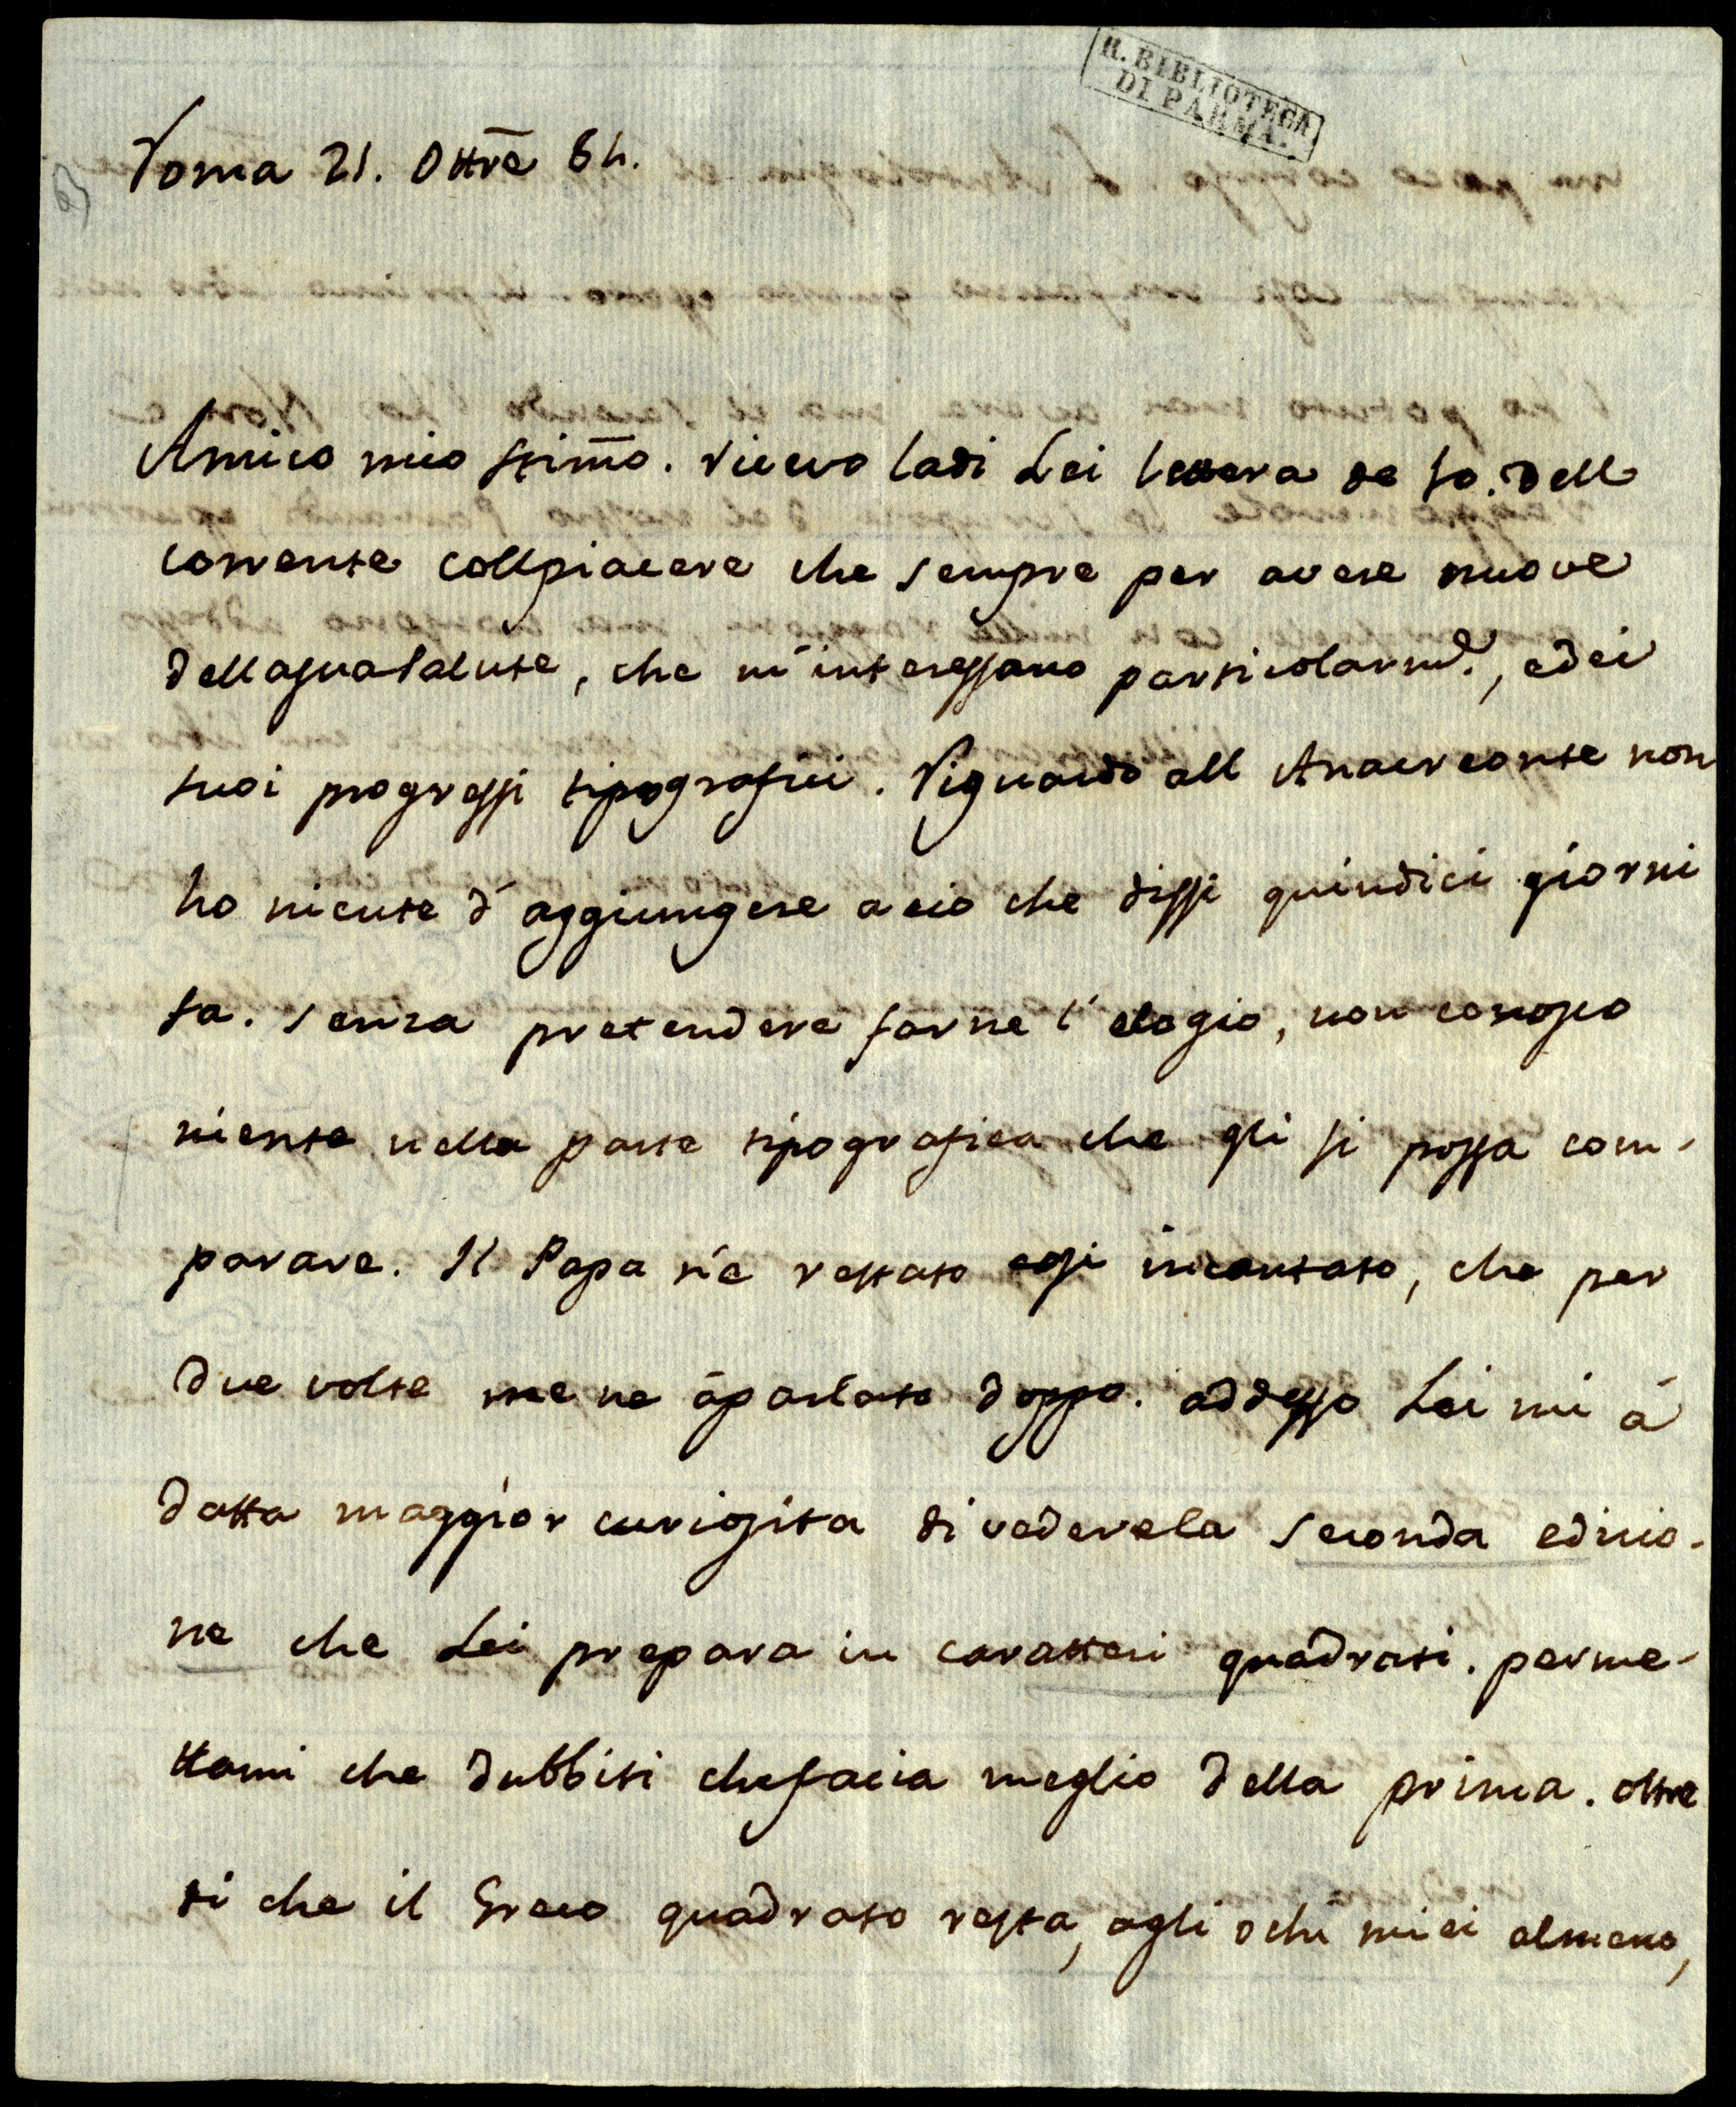 R. BIBLIOTECA
DI PARMA.
Roma 21. Ottrē 84.
Amico mio stimṁo. ricevo ladi Lei lettera de 10. dell
corrente collpiacere che sempre per avere nuove
dellasuasalute, che m'interessano particolarmẽ., edei
suoi progressi tipografici. Riguardo all Anacreonte non
ho niente d'aggiungere a cio che dissi quindici giorni
fa. senza pretendere farne l'elogio, non conosco
niente nella parte tipografica che gli si possa com-
parare. Il Papa n'è restato cosi incantato, che per
due volte me ne àparlato doppo. addesso Lei mi à
datta maggior curiosita di vederela seconda edizio-
ne che Lei prepara in caratteri quadrati. perme-
ttami che dubbiti chefacia meglio della prima. oltre
di che il Greco quadrato resta, agli ochi miei almeno,